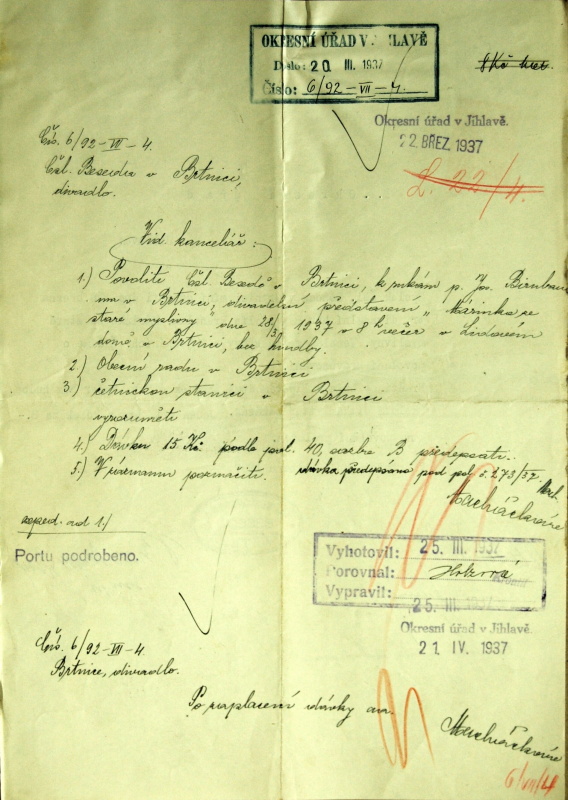 OKRESNÍ ÚŘAD V JIHLAVĚ
Došlo: 20 III. 1937
Číslo: 6/92-VII-4.
8 Kč
Okresní úřad v Jihlavě.
22. BŘEZ. 1937
L. 22/4.
Čís. 6/92-VII-4.
Čsl. Beseda v Brtnici,
divadlo.
Vid. kancelář:
1.) Povolte Čsl. Besedě v Brtnici, k rukám p. Jos.
v Brtnici, divadelní představení „Mařinka ze
staré myslivny" dne 28/3 1937 v 8 h večer v Lidovém
domě v Brtnici, bez hudby.
2.) Obecní radu v Brtnici
3.) četnickou stanici v Brtnici
vyrozuměti
4.) Dávku 15 Kč podle pol. 40, sazba B předepsati.
5.) V seznamu poznačiti. dávka předepsána pod pol. 273/37.
exped. ad 1./
Portu podrobeno.
Vyhotovil: 25. III. 1937
Porovnal:
Vypravil: 25. III. 1937
Okresní úřad v Jihlavě.
21 IV. 1937
Čís. 6/92-VII-4.
Brtnice, divadlo.
Po zaplacení dávky
6/VII/4